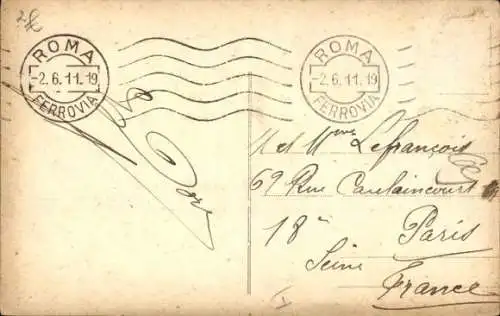 ROMA
-2.6.11.19
FERROVIA
ROMA
-2.6.11.19
FERROVIA
M et Mme Lefrançois
69 Rue Caulaincourt
18e Paris
Seine
France